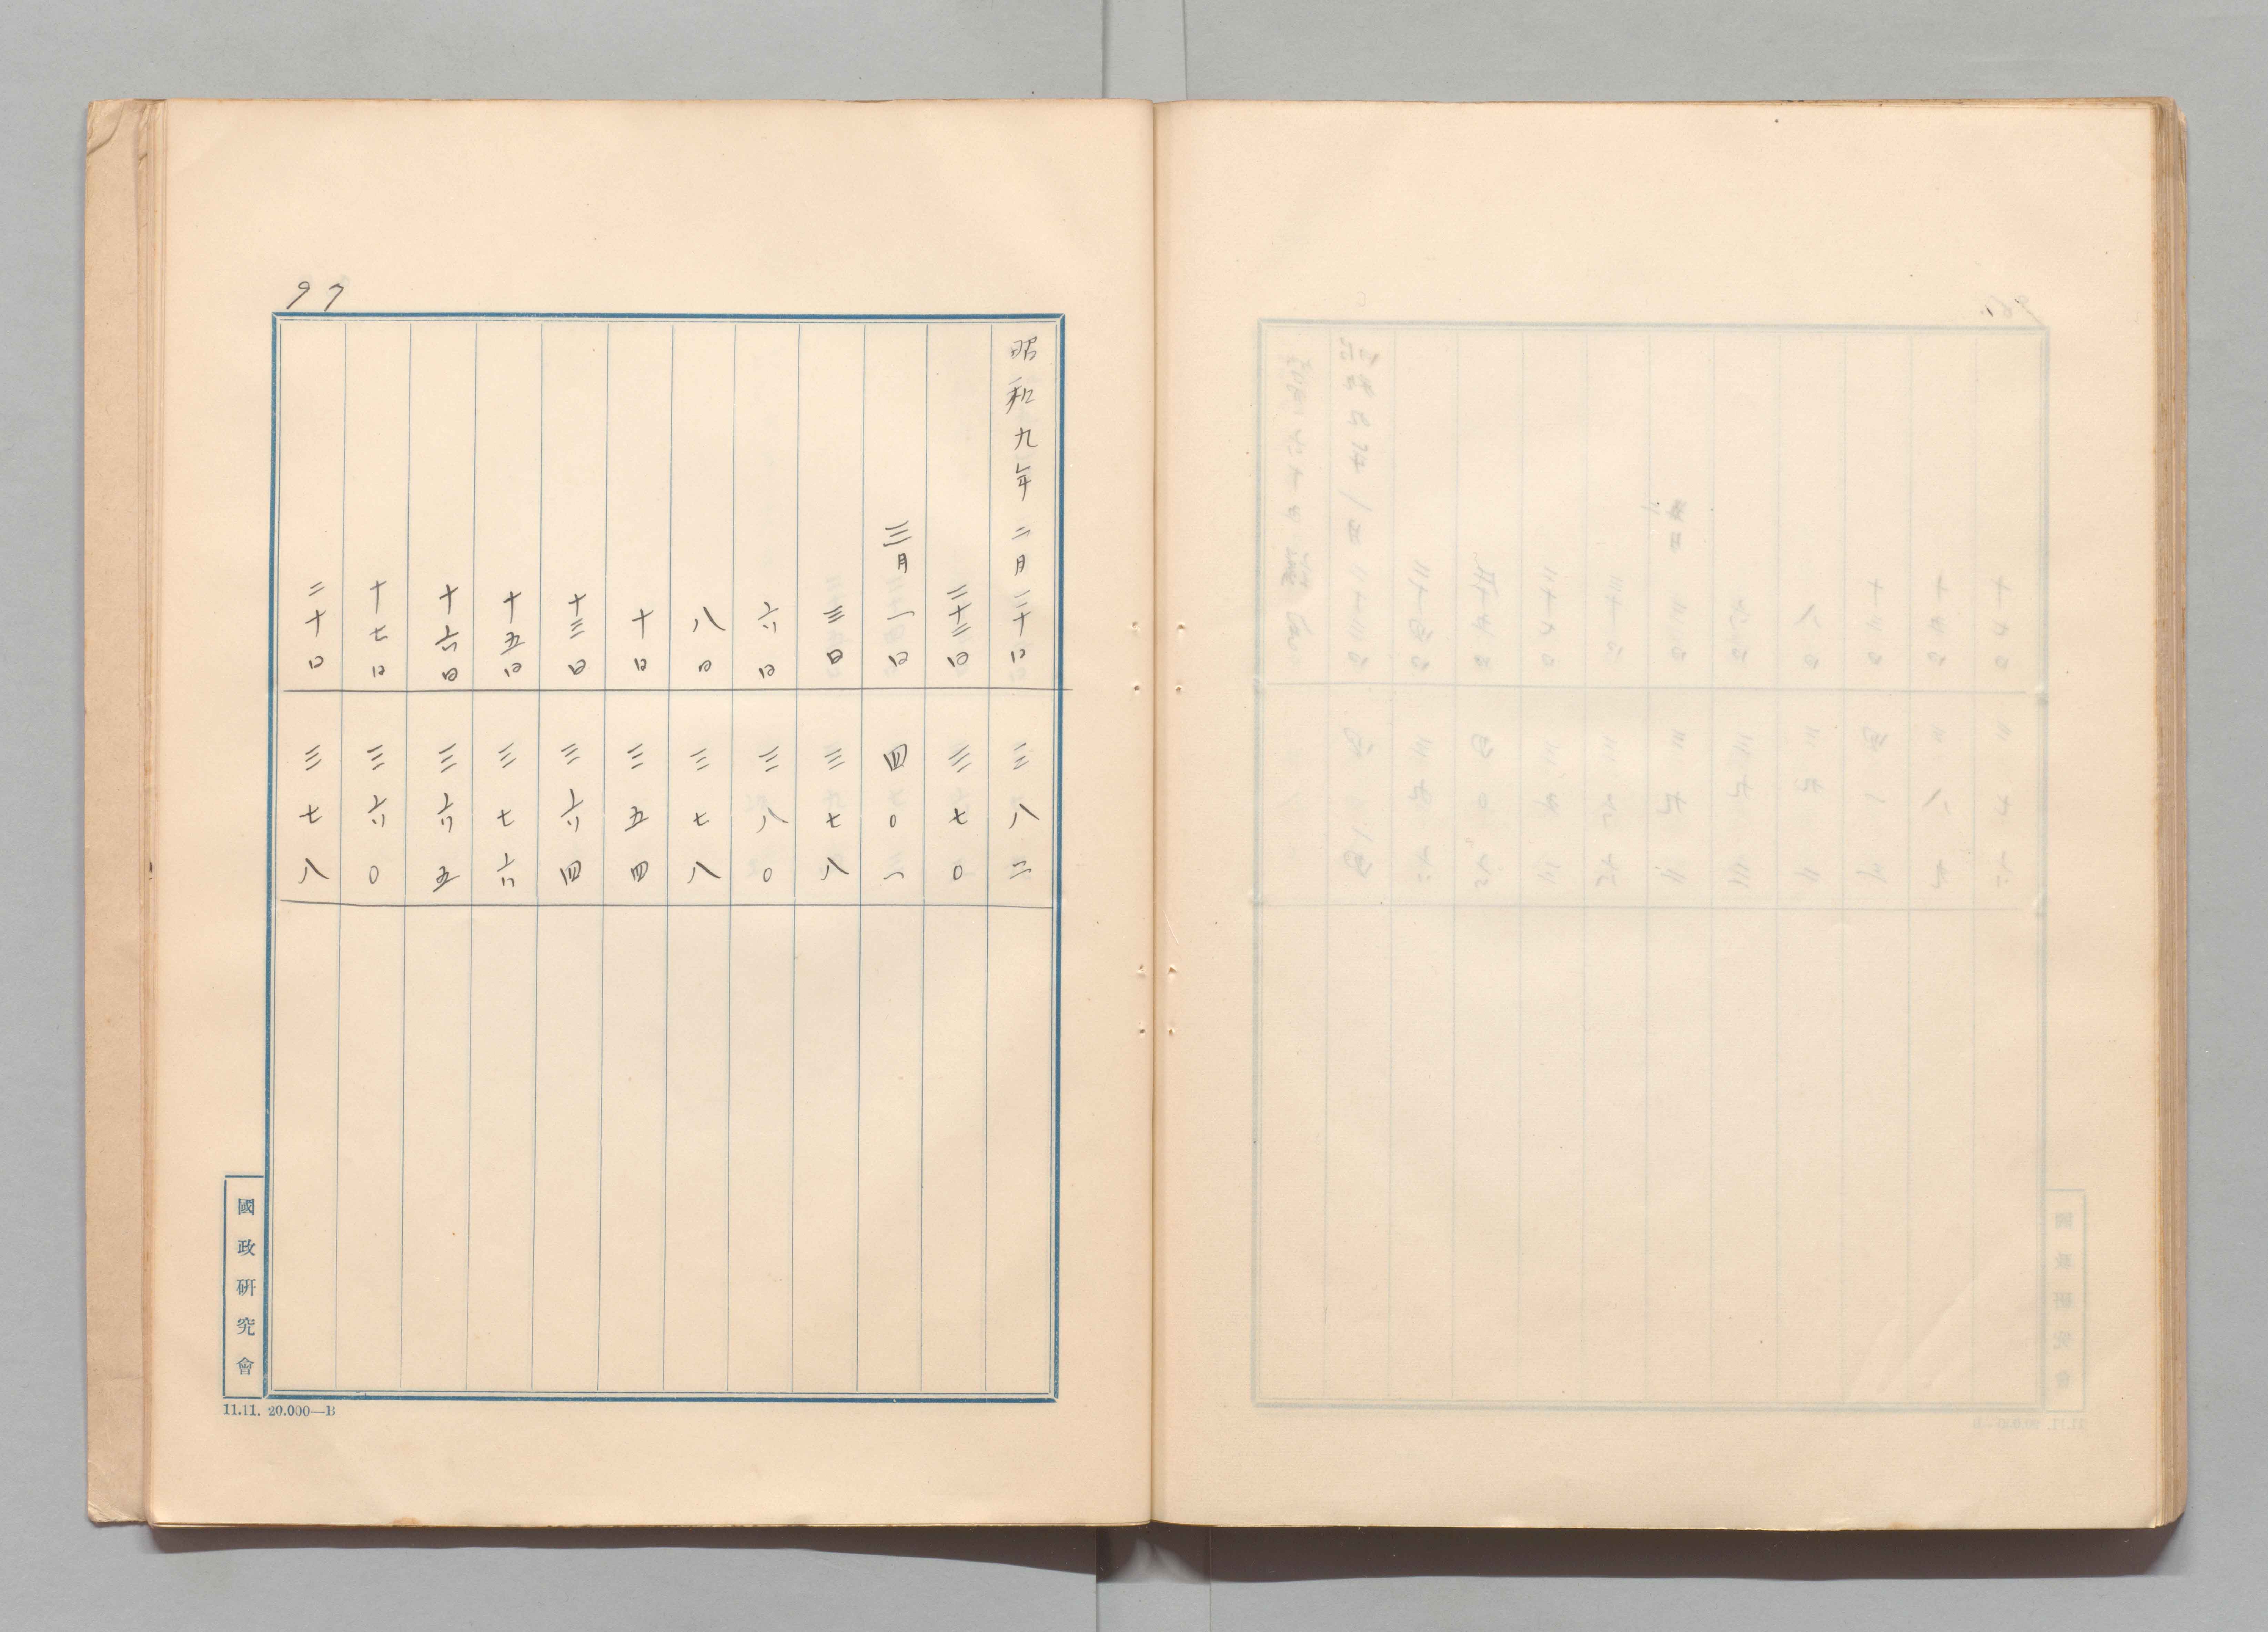 97
昭和九年 二月二十日 三八二
二十三日 三七〇
三月 一日 四〇一
三日 三七八
六日 三八〇
八日 三七八
十日 三五四
十三日 三六四
十五日 三七六
十六日 三六五
十七日 三六〇
二十日 三七八
國政研究會
11.11. 20.000—B